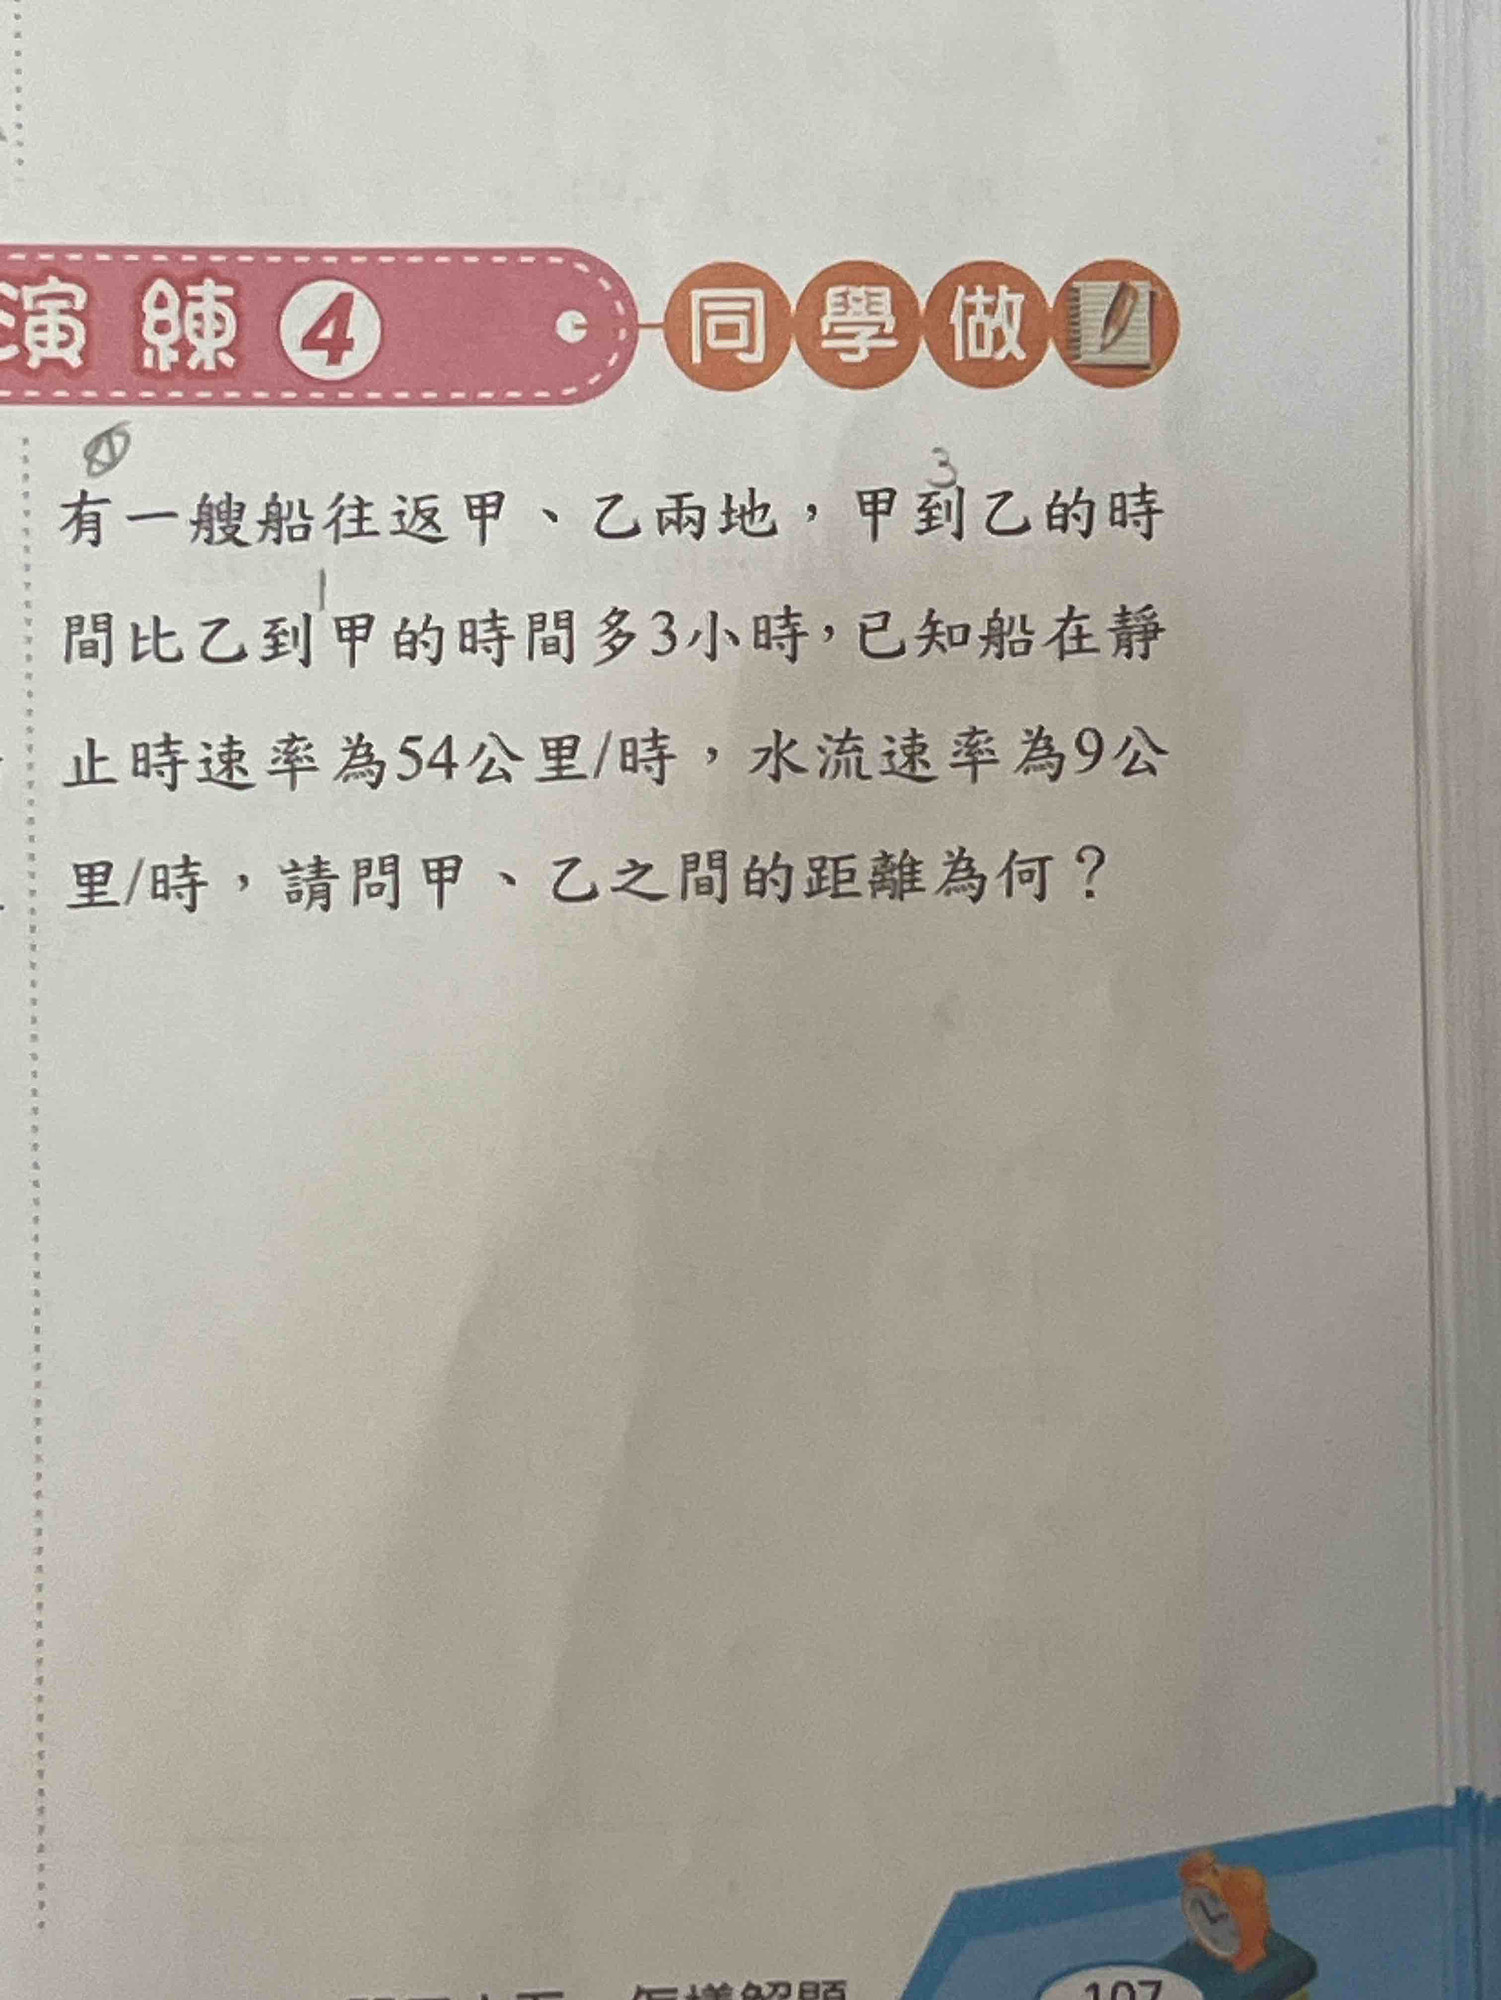 演練4 同學做
①
3
有一艘船往返甲、乙兩地，甲到乙的時
1
間比乙到甲的時間多3小時，已知船在靜
止時速率為54公里/時，水流速率為9公
里/時，請問甲、乙之間的距離為何？
怎樣解題
107